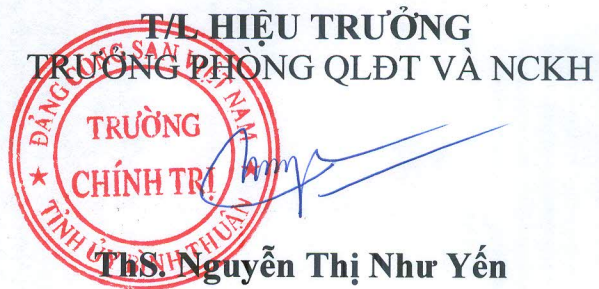 T/L HIỆU TRƯỞNG
TRƯỞNG PHÒNG QLĐT VÀ NCKH
ĐẢNG CỘNG SẢN VIỆT NAM
TRƯỜNG
CHÍNH TRỊ
TỈNH ỦY BÌNH THUẬN
ThS. Nguyễn Thị Như Yến